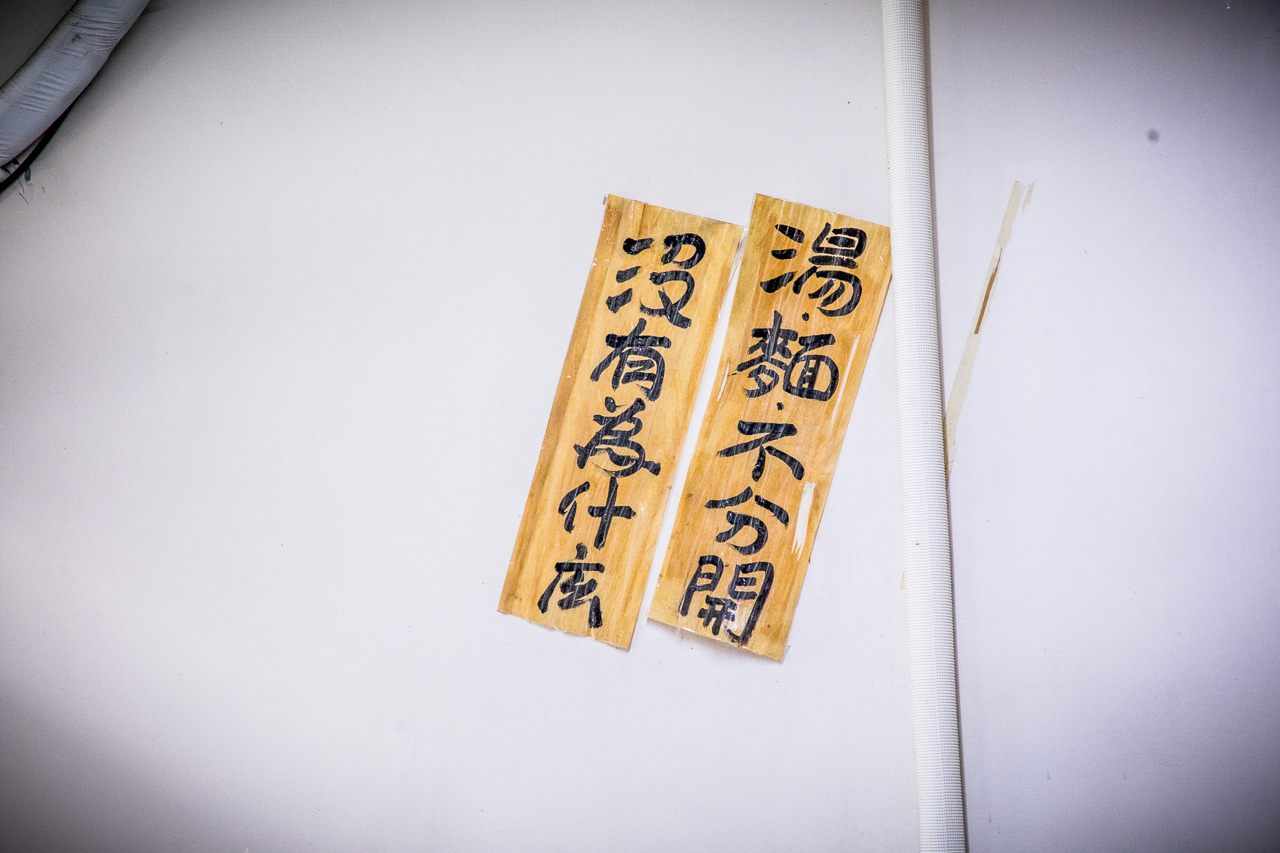 湯·麵·不分開
沒有為什庅